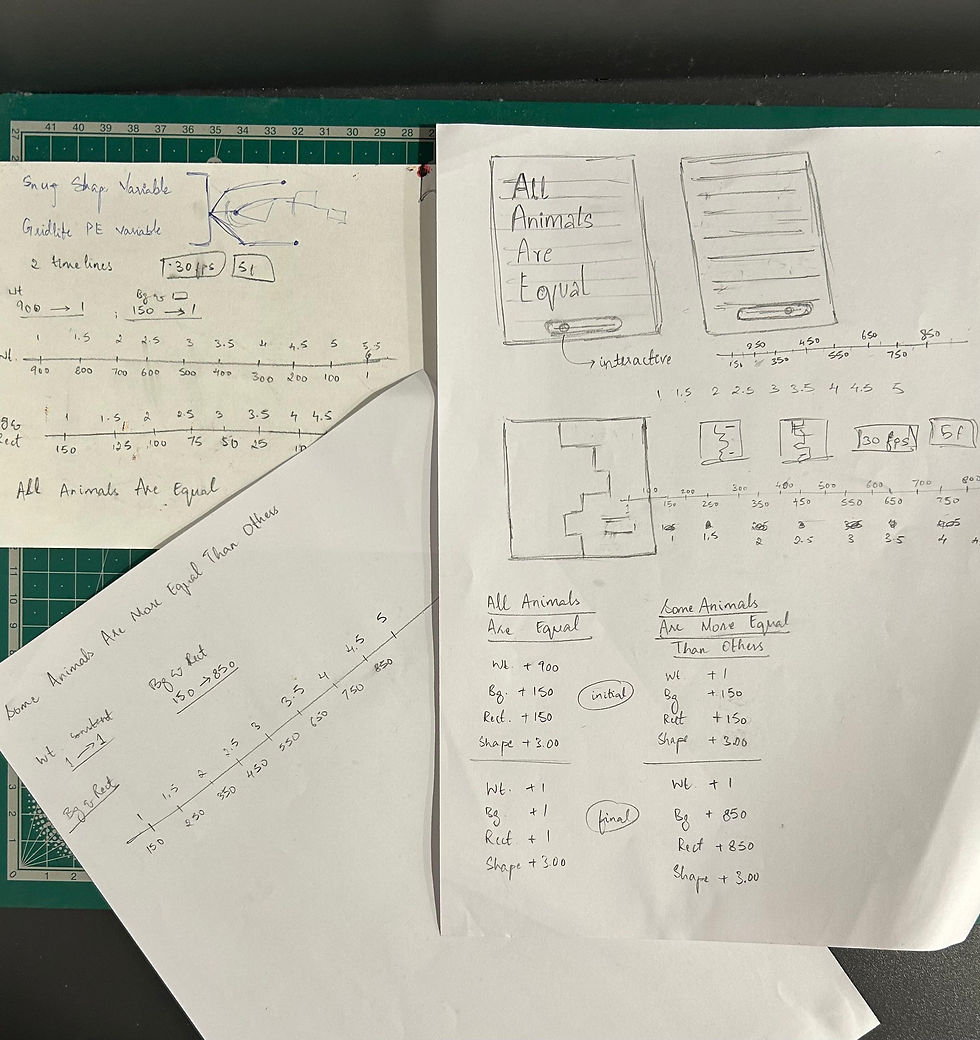 41 40 39 38 37 36 35 34 33 32 31 30 29 28
27
Snug Shape Variable
Gridlite PE Variable
2 timelines
30 fps
5f
Wt
900 → 1 ;
Bg &
150 → 1
1 1.5 2 2.5 3 3.5 4 4.5 5 5.5
900 800 700 600 500 400 300 200 100 1
Rect
1 1.5 2 2.5 3 3.5 4 4.5
150 125 100 75 50 25
All Animals Are Equal
11
10
9
3
2
1
0
1 2
Some Animals Are More Equal Than Others
Wt. constant
1 → 1
Bg & Rect
150 → 850
Bg & Rect
1 1.5 2 2.5 3 3.5 4 4.5 5
150 250 350 450 550 650 750 850
All
Animals
Are
Equal
→ interactive
250 450 650 850
150 350 550 750
1 1.5 2 2.5 3 3.5 4 4.5 5
30 fps
5f
100 200 300 400 500 600 700 800
150 250 350 450 550 650 750
1 1.5 2 2.5 3 3.5 4
All Animals
Are Equal
Wt. + 900
Bg. + 150
Rect. + 150
Shape + 3.00
initial
Some Animals
Are More Equal
Than Others
Wt + 1
Bg + 150
Rect + 150
Shape + 3.00
Wt. + 1
Bg. + 1
Rect + 1
Shape + 3.00
final
Wt + 1
Bg + 850
Rect + 850
Shape + 3.00